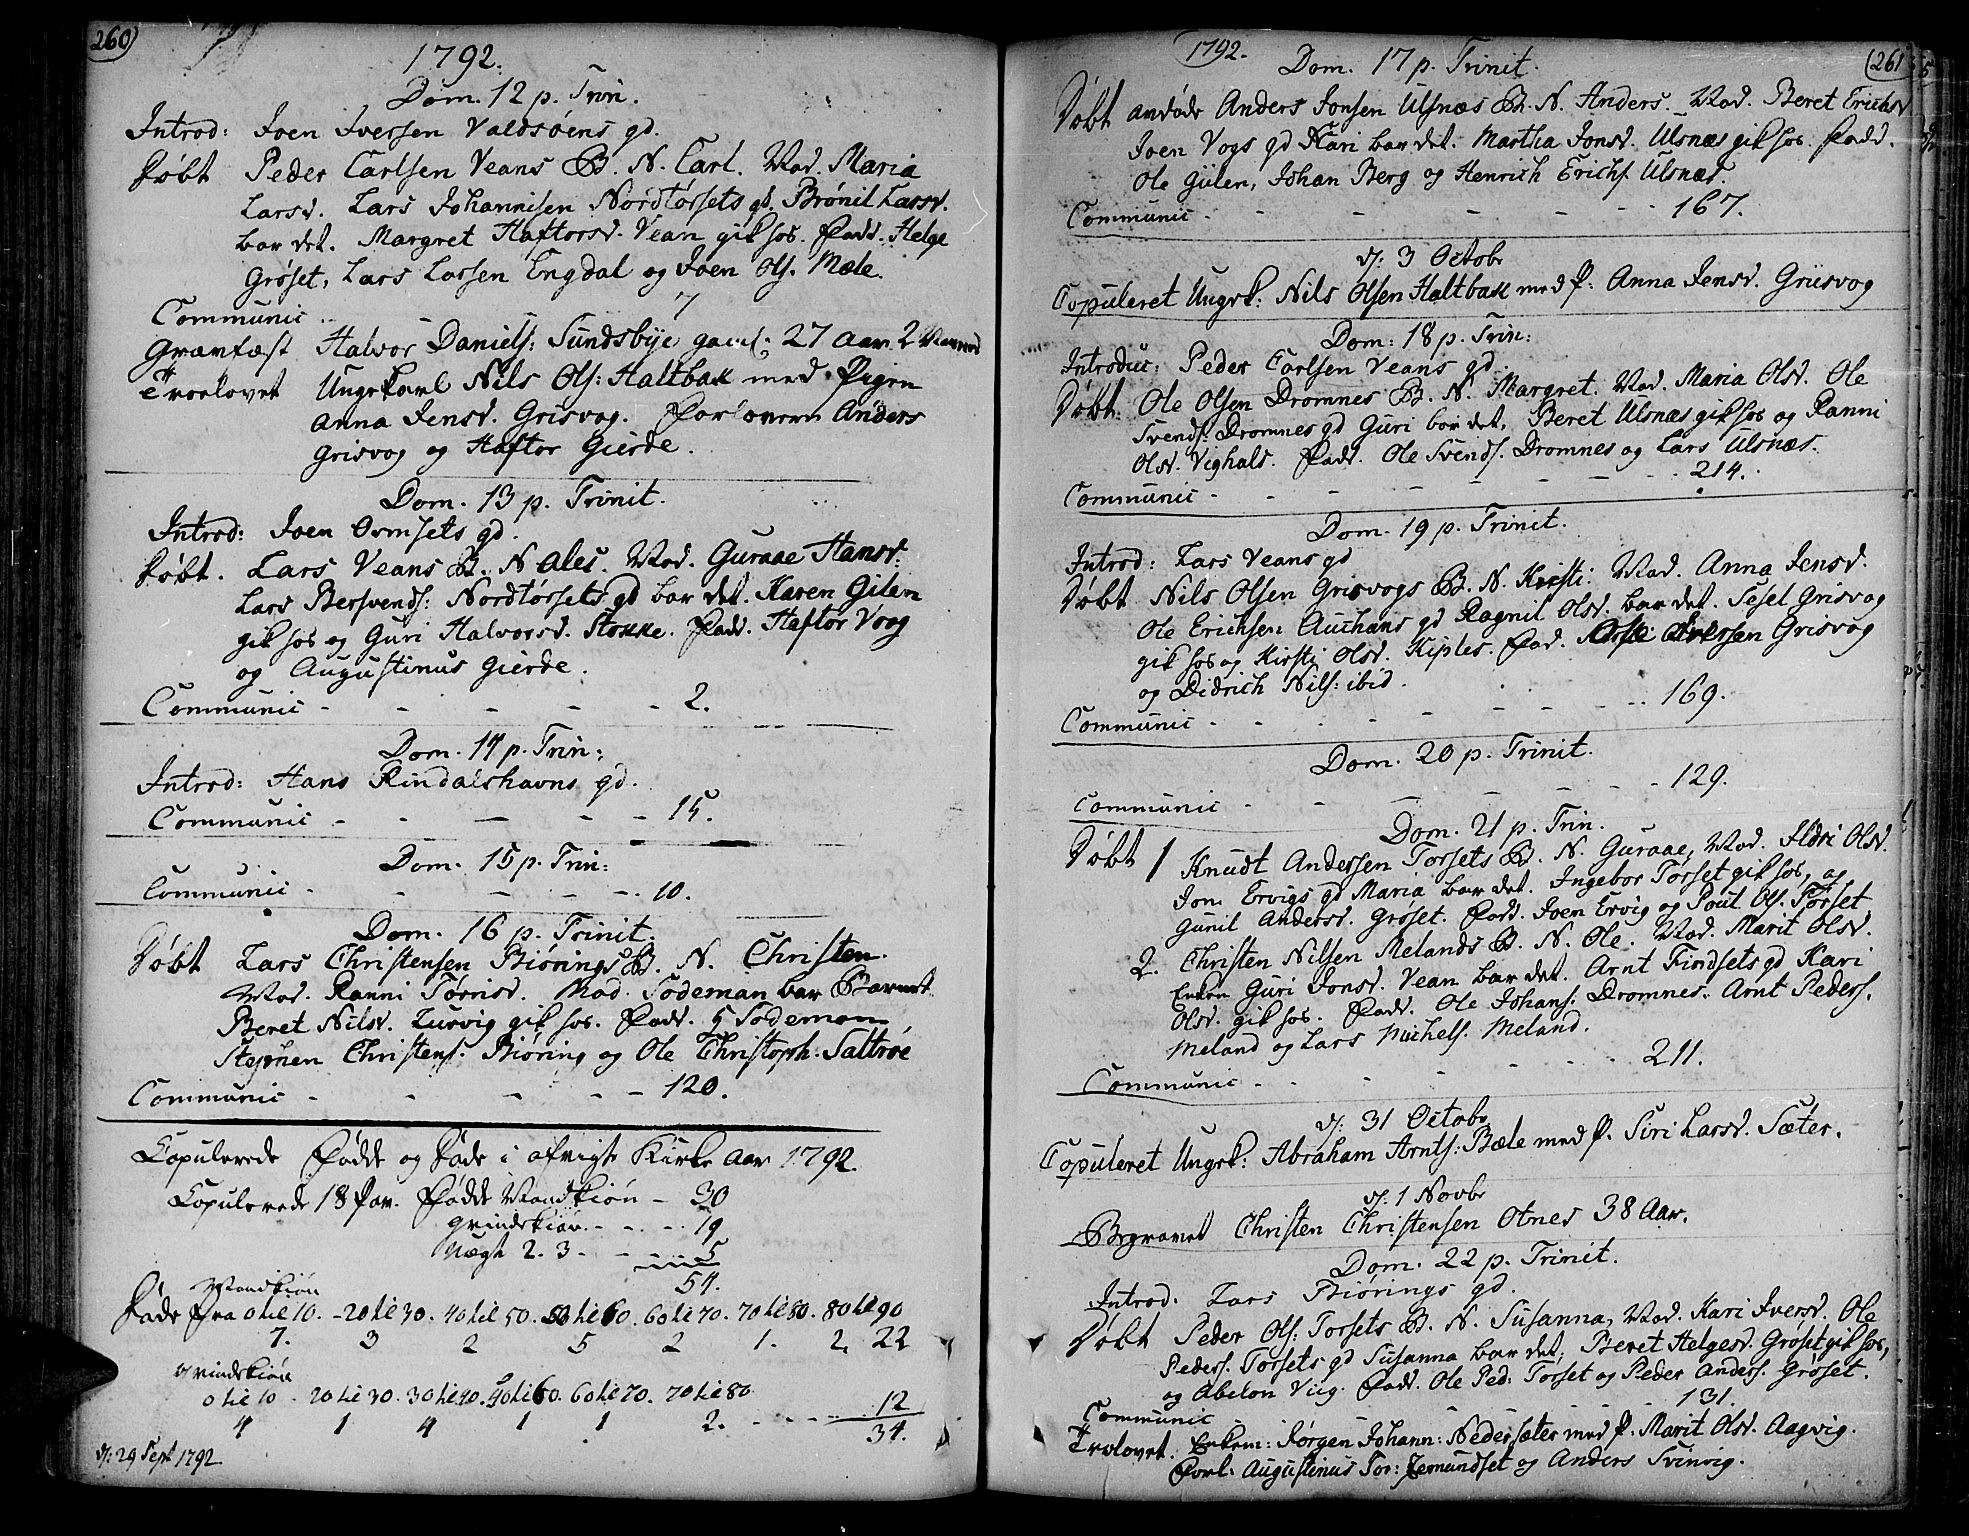 260
1792.
Dom. 12 p. Trin.
Introd: Joen Iversen Valdsøens gd.
Døbt Peder Carlsen Veans B. N. Carl. Mod. Maria
Larsd. Lars Johannisen Nordtørsets gd. Brønil Larsd.
bar det. Margret Haftorsd. Vean gik hos. Fadd. Helge
Grøset, Lars Larsen Engdal og Joen Ols. Mæle.
Communic - - 7
Græsfæst Halvor Daniels: Sundsbye gaml. 27 Aar 2
Trolovet Ungekarl Nils Ols: Haltbak med Pigen
Anna Jensd. Grisvog. Forlovere Anders
Grisvog og Haftor Gierde.
Dom. 13 p. Trinit.
Introd: Joen Ormsets gd.
Døbt. Lars Veans B. N Ales. Mod. Guraae Hansd:
Lars Bersvends: Nordtørsets gd bar det. Karen Gilen
gik hos og Guri Halvorsd. Stokke. Fadd. Haftor Voog
og Augustinus Gierde.
Communic - - - - - 2.
Dom. 14 p. Trin:
Introd: Hans Rindalshavns gd.
Communic - - - - - 15.
Dom. 15 p. Trin:
Communic - - - - - 10.
Dom. 16 p. Trinit.
Døbt Lars Christensen Biørings B. N. Christen.
Mod. Ranni Tørrisd. Mad. Todeman bar Barnet.
Beret Nilsd. Lurvig gik hos. Fadd. Todeman
Stephen Christens. Biøring og Ole Christoph. Saltrøe
Communic - - - - - 120.
Copulerede Fødde og Døde i afvigte Kirke Aar 1792.
Copulerede 18 Par. Fødde Mandkiøn - 30
Qvindekiøn - - - 19
Uægte 2. 3 - - - 5
54.
Mandkiøn
Døde Fra 0 til 10. - 20 til 30. 40 til 50. 50 til 60. 60 til 70. 70 til 80. 80 til 90
7. 3 2 5 2 1. 2. 22
Qvindekiøn
0 til 10 - 20 til 30. 30 til 40. til 60. 60 til 70. 70 til 80
4 1 4 1 1 2. - - - 12
34.
d: 29 Sept 1792
1792.
261
Dom. 17 p. Trinit.
Døbt Anders Jonsen Ulsnæs B. N. Anders. Mod. Beret Erichsd
Joen Vogs gd Kari bar det. Martha Jonsd. Ulsnæs gik hos. Fadd.
Ole Gülen, Johan Berg og Henrich Erichs. Ulsnæs
Communic - - - - - 167.
d: 3 Octobr
Copuleret Ungk: Nils Olsen Haltbak med P: Anna Jensd. Griisvog
Dom: 18 p. Trin:
Introduc: Peder Carlsen Veans gd
Døbt. Ole Olsen Dromnes B. N. Margret. Mod. Maria Olsd. Ole
Svends: Dromnes gd Guri bar det. Beret Ulsnæs gik hos og Ranni
Olsd. Vighals. Fadd. Ole Svends. Dromnes og Lars Ulsnæs.
Communic - - - - - 214.
Dom. 19 p. Trinit.
Introd: Lars Veans gd
Døbt Nils Olsen Grisvogs B. N. Kirsti. Mod. Anna Jensd.
Ole Erichsen Auchans gd Ragnil Olsd. bar det. Sesel Grisvog
gik hos og Kirsti Olsd. Kiples. Fad. Iversen Grisvog
og Didrich Nils: ibid.
Communic - - - - - 169.
Dom. 20 p. Trinit.
Communic - - - - - 129.
Dom. 21 p. Trin.
Døbt 1 Knudt Andersen Torsets B. N. Guraae, Mod. Ildri Olsd.
Jon Ervigs gd Maria bar det. Ingebor Torset gik hos, og
Gunil Andersd. Grøset. Fadd. Joen Ervig og Poul Ols. Torset
2. Christen Nilsen Melands B. N. Ole. Mod. Marit Olsd.
Enken Guri Jonsd. Vean bar det. Arnt Findsets gd Kari
Olsd. gik hos. Fadd. Ole Johans. Dromnes. Arnt Peders.
Meland og Lars Michels. Meland.
Communic - - - - - 211.
d: 31 Octobr
Copuleret Ungk: Abraham Arnts: Bæle med P. Siri Larsd. Sæter.
d: 1 Novbr
Begravet Christen Christensen Otnes 38 Aar.
Dom. 22 p. Trinit.
Introd: Lars Biørings gd.
Døbt Peder Ols: Torsets B. N. Susanna, Mod. Kari Iversd. Ole
Peders. Torsets gd Susanna bar det. Beret Helgesd. Grøset gik hos,
og Abelon Viig. Fadd. Ole Ped: Torset og Peder Anders. Grøset.
Communic - - - 131.
Trolovet. Enkem: Jørgen Johann: Nedersæter med P. Marit Olsd. Aagvig.
Forl: Augustinus Tor: Jemundset og Anders Svinvig.